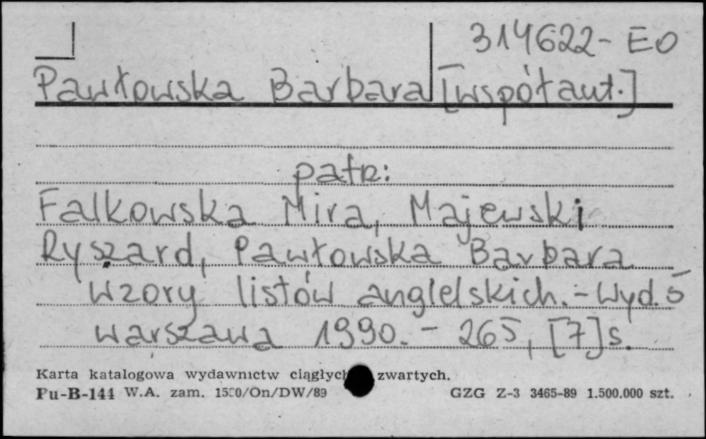 314622-EO
Pawłowska Barbara [współaut.]
patrz:
Falkowska Mira, Majewski
Ryszard, Pawłowska Barbara
Wzory listów angielskich. - Wyd. 5
Warszawa 1990. - 265, [7]s.
Karta katalogowa wydawnictw ciągłych zwartych.
Pu-B-144 W.A. zam. 1500/On/DW/89 GZG Z-3 3465-89 1.500.000 szt.